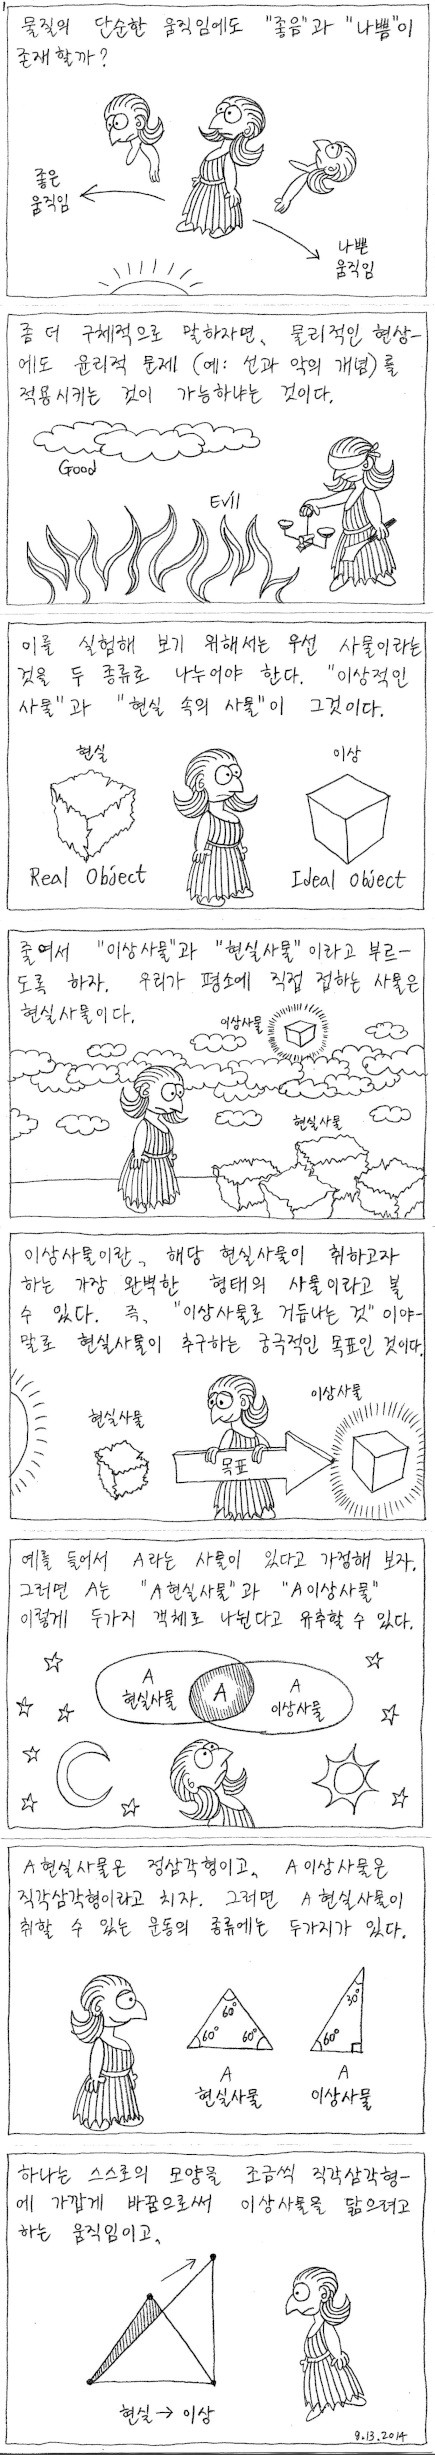 물질의 단순한 움직임에도 "좋음"과 "나쁨"이
존재할까?
좋은
움직임
나쁜
움직임
좀 더 구체적으로 말하자면, 물리적인 현상-
에도 윤리적 문제 (예: 선과 악의 개념)를
적용시키는 것이 가능하냐는 것이다.
Good
Evil
이를 실험해 보기 위해서는 우선 사물이라는
것을 두 종류로 나누어야 한다. "이상적인
사물"과 "현실 속의 사물"이 그것이다.
현실
이상
Real Object
Ideal Object
줄여서 "이상사물"과 "현실사물"이라고 부르-
도록 하자. 우리가 평소에 직접 접하는 사물은
현실사물이다.
이상사물
현실사물
이상사물이란, 해당 현실사물이 취하고자
하는 가장 완벽한 형태의 사물이라고 볼
수 있다. 즉, "이상사물로 거듭나는 것"이야-
말로 현실사물이 추구하는 궁극적인 목표인 것이다.
이상사물
현실사물
목표
예를 들어서 A라는 사물이 있다고 가정해 보자.
그러면 A는 "A현실사물"과 "A이상사물"
이렇게 두가지 객체로 나뉜다고 유추할 수 있다.
A
현실사물
A
A
이상사물
A현실사물은 정삼각형이고, A이상사물은
직각삼각형이라고 치자. 그러면 A현실사물이
취할 수 있는 운동의 종류에는 두가지가 있다.
60°
60°
60°
30°
60°
A
현실사물
A
이상사물
하나는 스스로의 모양을 조금씩 직각삼각형-
에 가깝게 바꿈으로써 이상사물을 닮으려고
하는 움직임이고,
현실 → 이상
8.13.2014